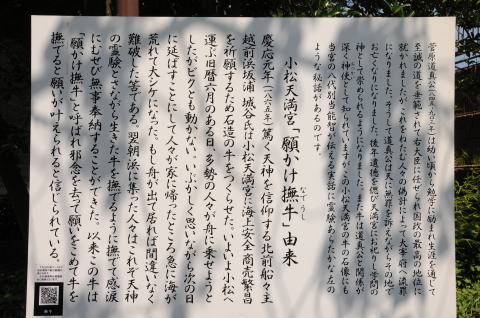 菅原道真公(八四五~九〇三)は幼い頃から勉学に励まれ生涯を通じて
至誠の道を垂範されて右大臣に任ぜられ国政の最高の地位に
就かれましたがこれをねたむ人々の偽計によって大宰府へ流罪
になりました。そうして道真公は天に無罪を訴えながらその地で
お亡くなりになりました。後年道徳を偲び天満宮にお祀りし学問の
神として崇められるようになりました。また牛は道真公と関係が
深く神使として知られていますがこの小松天満宮の牛の石像にも
当宮の八代別当能賀が伝える実話に霊験あらたかな左の
ような秘話があるのです。
小松天満宮「願かけ撫牛」由来
なでうし
慶応元年(一八六五年)篤く天神を信仰する北前船々主
越前浜坂浦 城谷氏は小松天満宮に海上安全 商売繁昌
を祈願するため石造の牛をつくらせた。いよいよ小松へ
運ぶ旧暦六月のある日、多勢の人々が舟に乗せようと
したがビクとも動かない。いぶかしく思いながら次の日
に延ばすことにして人々が家に帰ったところ急に海が
荒れて大シケになった。もし舟が出て居れば間違いなく
難破した筈である。翌朝浜に集った人々はこれぞ天神
の霊験とさながら生きた牛を撫でるように撫でて感涙
にむせび無事奉納することができた。以来この牛は
「願かけ撫牛」と呼ばれ邪念を去って願いをこめて牛を
撫でると願いが叶えられると信じられている。